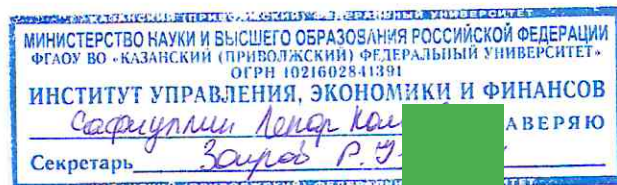 КАЗАНСКИЙ (ПРИВОЛЖСКИЙ) ФЕДЕРАЛЬНЫЙ УНИВЕРСИТЕТ
МИНИСТЕРСТВО НАУКИ И ВЫСШЕГО ОБРАЗОВАНИЯ РОССИЙСКОЙ ФЕДЕРАЦИИ
ФГАОУ ВО «КАЗАНСКИЙ (ПРИВОЛЖСКИЙ) ФЕДЕРАЛЬНЫЙ УНИВЕРСИТЕТ»
ОГРН 1021602841391
ИНСТИТУТ УПРАВЛЕНИЯ, ЭКОНОМИКИ И ФИНАНСОВ
Сафиуллин Ленар АВЕРЯЮ
Секретарь Заиров Р.